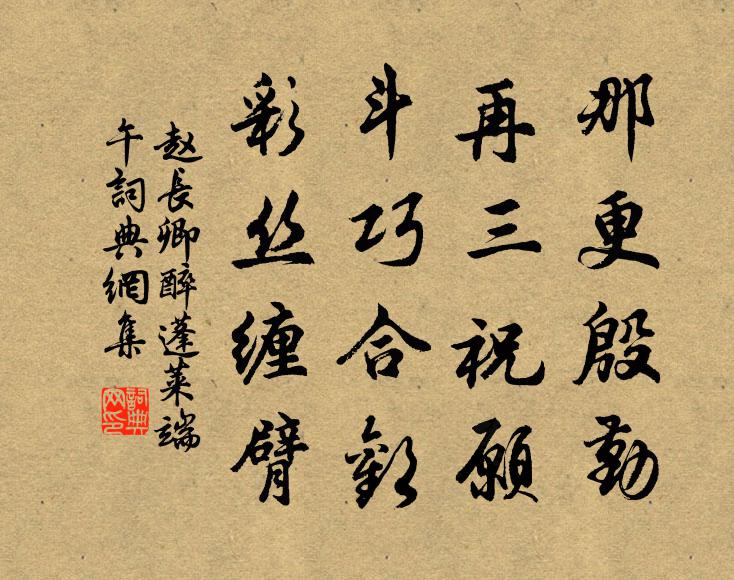 那更殷勤
再三祝願
斗巧合歡
彩丝缠臂
赵長卿醉蓬莱端
午詞典網集
詞典
网印